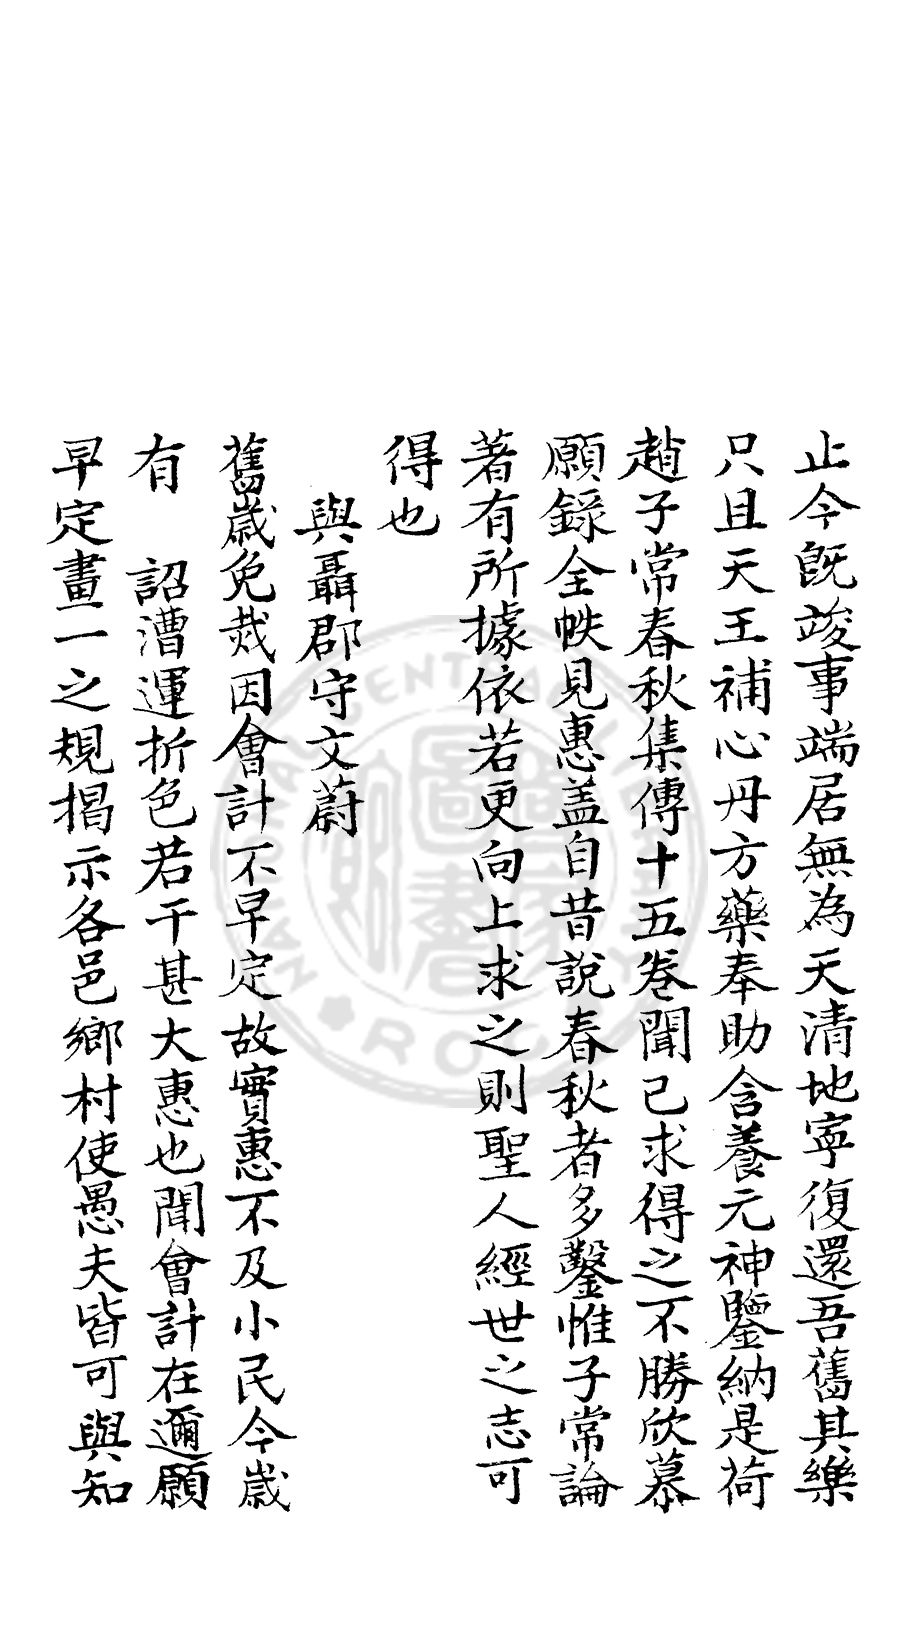 止今旣竣事端居無為天清地寧復還吾舊其樂
只且天王補心丹方藥奉助含養元神鑒納是荷
趙子常春秋集傳十五卷聞已求得之不勝欣慕
願錄全帙見惠盖自昔說春秋者多鑿惟子常論
著有所據依若更向上求之則聖人經世之志可
得也
與聶郡守文蔚
舊歲免烖因會計不早定故實惠不及小民今歲
有 詔漕運折色若干甚大惠也聞會計在邇願
早定畫一之規揭示各邑鄉村使愚夫皆可與知